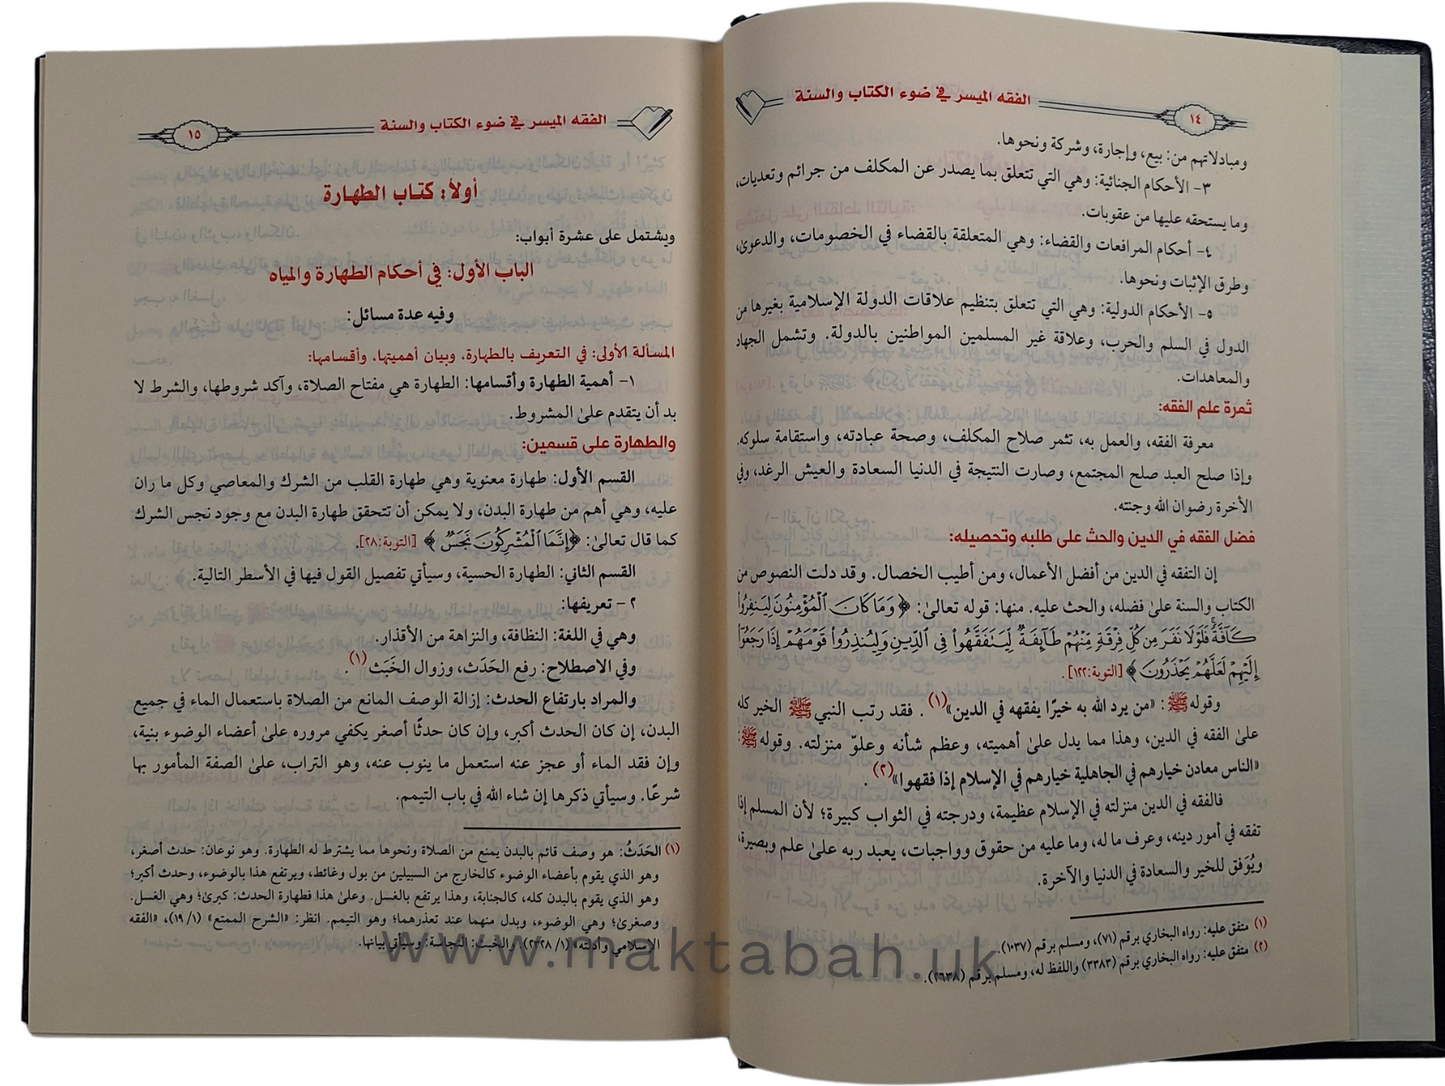 الفقه الميسر في ضوء الكتاب والسنة
١٤
ومبادلاتهم من: بيع، وإجارة، وشركة ونحوها.
٣- الأحكام الجنائية: وهي التي تتعلق بما يصدر عن المكلف من جرائم وتعديات،
وما يستحقه عليها من عقوبات.
٤- أحكام المرافعات والقضاء: وهي المتعلقة بالقضاء في الخصومات، والدعوى،
وطرق الإثبات ونحوها.
٥- الأحكام الدولية: وهي التي تتعلق بتنظيم علاقات الدولة الإسلامية بغيرها من
الدول في السلم والحرب، وعلاقة غير المسلمين المواطنين بالدولة. وتشمل الجهاد
والمعاهدات.
ثمرة علم الفقه:
معرفة الفقه، والعمل به، تثمر صلاح المكلف، وصحة عبادته، واستقامة سلوكه.
وإذا صلح العبد صلح المجتمع، وصارت النتيجة في الدنيا السعادة والعيش الرغد، وفي
الأخرة رضوان الله وجنته.
فضل الفقه في الدين والحث على طلبه وتحصيله:
إن التفقه في الدين من أفضل الأعمال، ومن أطيب الخصال. وقد دلت النصوص من
الكتاب والسنة على فضله، والحث عليه. منها: قوله تعالى: ﴿وَمَا كَانَ الْمُؤْمِنُونَ لِيَنفِرُوا
كَآفَّةً فَلَوْلَا نَفَرَ مِن كُلِّ فِرْقَةٍ مِّنْهُمْ طَآئِفَةٌ لِّيَتَفَقَّهُوا فِي الدِّينِ وَلِيُنذِرُوا قَوْمَهُمْ إِذَا رَجَعُوا
إِلَيْهِمْ لَعَلَّهُمْ يَحْذَرُونَ﴾ [التوبة:١٢٢].
وقوله ﷺ: «من يرد الله به خيرًا يفقهه في الدين»(١). فقد رتب النبي ﷺ الخير كله
على الفقه في الدين، وهذا مما يدل على أهميته، وعظم شأنه وعلوّ منزلته. وقوله ﷺ:
«الناس معادن خيارهم في الجاهلية خيارهم في الإسلام إذا فقهوا»(٢).
فالفقه في الدين منزلته في الإسلام عظيمة، ودرجته في الثواب كبيرة؛ لأن المسلم إذا
تفقه في أمور دينه، وعرف ما له، وما عليه من حقوق وواجبات، يعبد ربه على علم وبصيرة،
ويُوَفق للخير والسعادة في الدنيا والآخرة.
(١) متفق عليه: رواه البخاري برقم (٧١)، ومسلم برقم (١٠٣٧).
(٢) متفق عليه: رواه البخاري برقم (٣٣٨٣) واللفظ له، ومسلم برقم (٢٦٣٨).
الفقه الميسر في ضوء الكتاب والسنة
١٥
أولاً: كتاب الطهارة
ويشتمل على عشرة أبواب:
الباب الأول: في أحكام الطهارة والمياه
وفيه عدة مسائل:
المسألة الأولى: في التعريف بالطهارة، وبيان أهميتها، وأقسامها:
١- أهمية الطهارة وأقسامها: الطهارة هي مفتاح الصلاة، وآكد شروطها، والشرط لا
بد أن يتقدم على المشروط.
والطهارة على قسمين:
القسم الأول: طهارة معنوية وهي طهارة القلب من الشرك والمعاصي وكل ما ران
عليه، وهي أهم من طهارة البدن، ولا يمكن أن تتحقق طهارة البدن مع وجود نجس الشرك
كما قال تعالى: ﴿إِنَّمَا الْمُشْرِكُونَ نَجَسٌ﴾ [التوبة:٢٨].
القسم الثاني: الطهارة الحسية، وسيأتي تفصيل القول فيها في الأسطر التالية.
٢- تعريفها:
وهي في اللغة: النظافة، والنزاهة من الأقذار.
وفي الاصطلاح: رفع الحَدَث، وزوال الخَبَث(١).
والمراد بارتفاع الحدث: إزالة الوصف المانع من الصلاة باستعمال الماء في جميع
البدن، إن كان الحدث أكبر، وإن كان حدثًا أصغر يكفي مروره على أعضاء الوضوء بنية،
وإن فقد الماء أو عجز عنه استعمل ما ينوب عنه، وهو التراب، على الصفة المأمور بها
شرعًا. وسيأتي ذكرها إن شاء الله في باب التيمم.
(١) الحَدَثُ: هو وصف قائم بالبدن يمنع من الصلاة ونحوها مما يشترط له الطهارة. وهو نوعان: حدث أصغر،
وهو الذي يقوم بأعضاء الوضوء كالخارج من السبيلين من بول وغائط، ويرتفع هذا بالوضوء، وحدث أكبر؛
وهو الذي يقوم بالبدن كله، كالجنابة، وهذا يرتفع بالغسل. وعلى هذا فطهارة الحدث: كبرى؛ وهي الغسل.
وصغرى؛ وهي الوضوء، وبدل منهما عند تعذرهما؛ وهو التيمم. انظر: «الشرح الممتع» (١/ ١٩)، «الفقه
الإسلامي وأدلته» (١/ ٢٣٨). والخبث: النجاسة؛ وسيأتي بيانها.
www.maktabah.uk